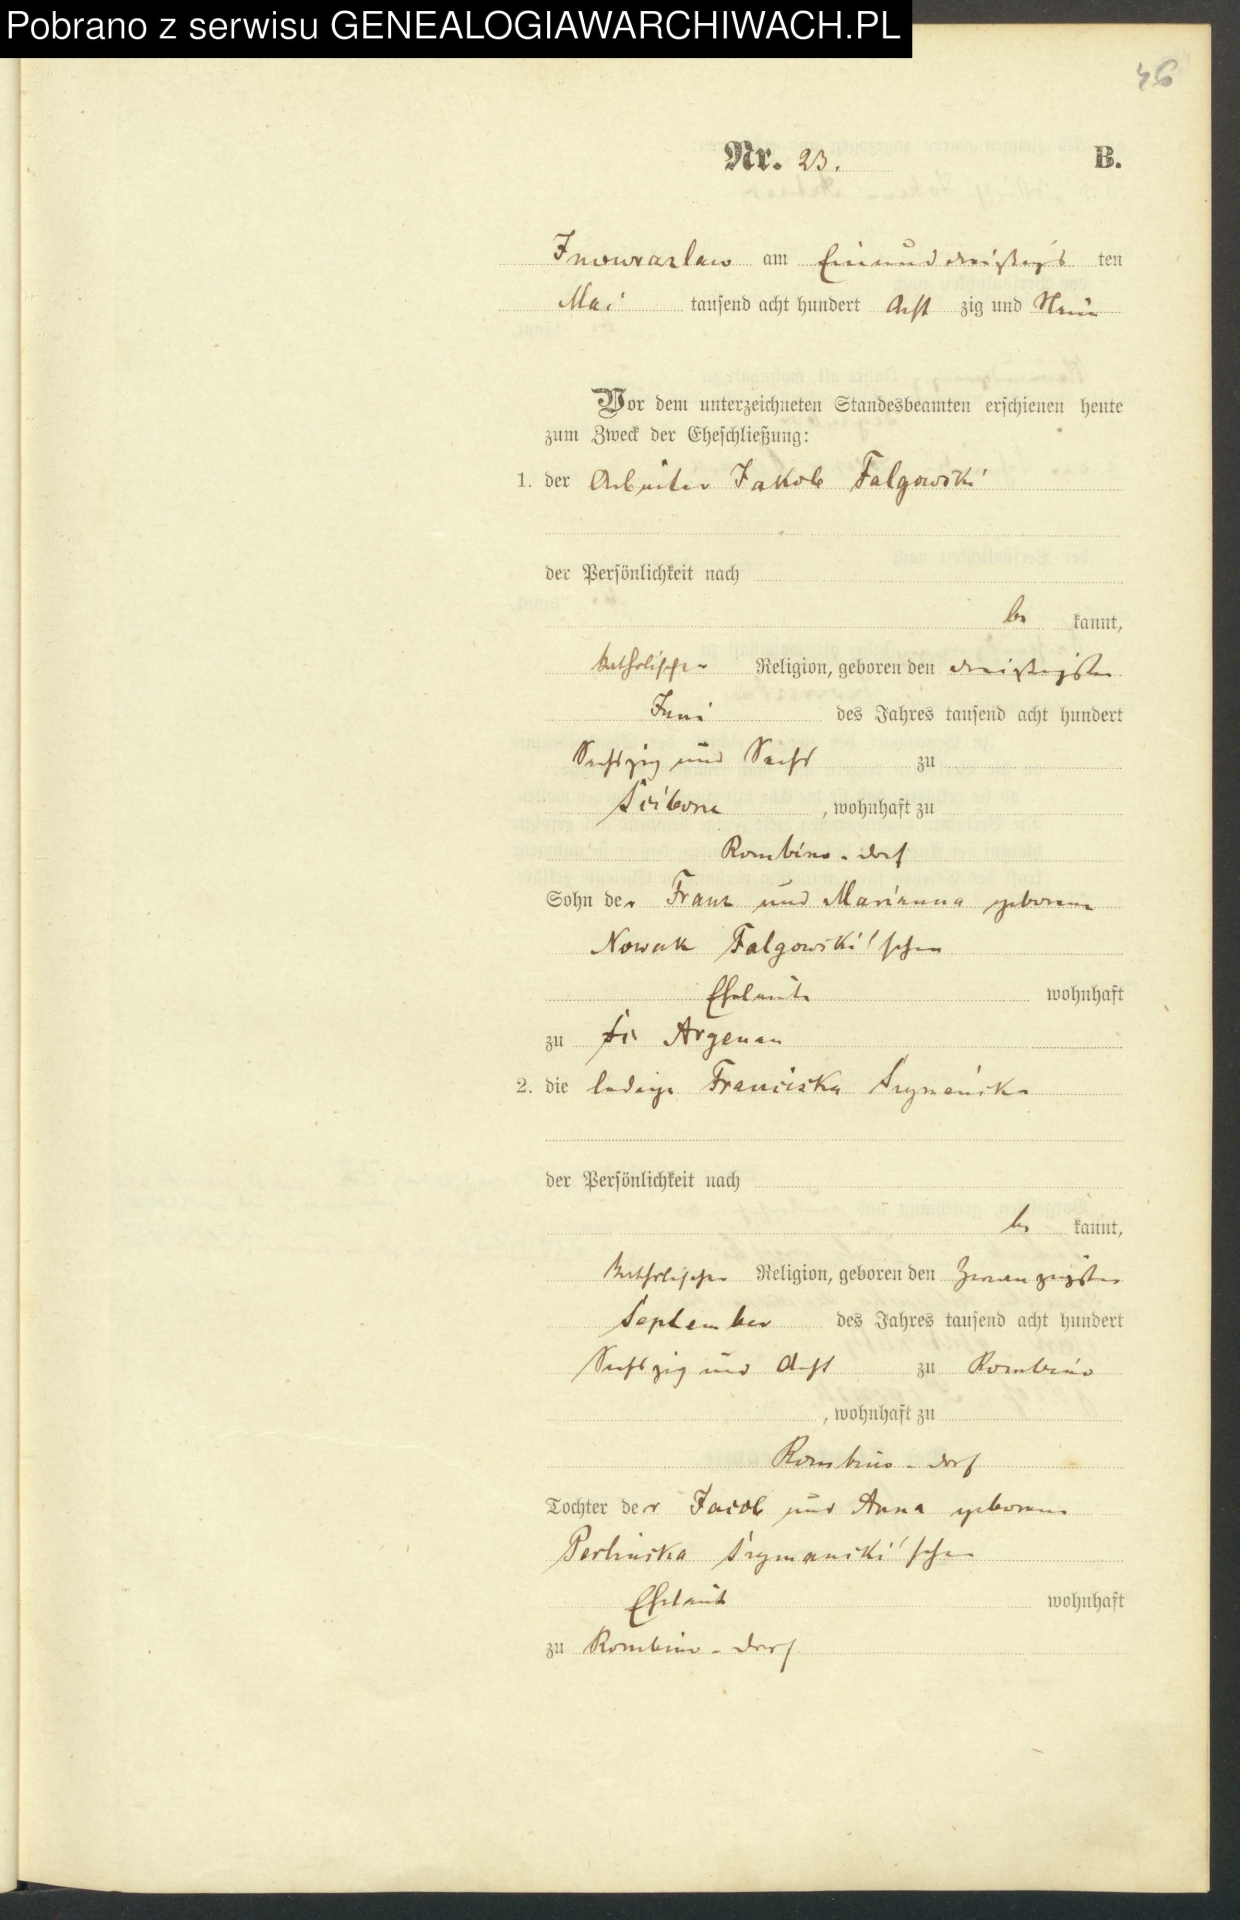 Pobrano z serwisu GENEALOGIAWARCHIWACH.PL
46
Nr. 23. B.
Inowrazlaw am Einunddreißigs ten
Mai tausend acht hundert Acht zig und Neun
Vor dem unterzeichneten Standesbeamten erschienen heute
zum Zweck der Eheschließung:
1. der Arbeiter Jakob Falgowski
der Persönlichkeit nach
be kannt,
katholischer Religion, geboren den dreißigsten
Juni des Jahres tausend acht hundert
Sechszig und Sechs zu
Sciborze, wohnhaft zu
Rombino-dorf
Sohn der Franz und Marianna geborene
Nowak Falgowski'schen
Eheleute wohnhaft
zu Argenau
2. die ledige Franciska Szymańska
der Persönlichkeit nach
be kannt,
katholischer Religion, geboren den Zwanzigsten
September des Jahres tausend acht hundert
Sechszig und Acht zu Rombino
, wohnhaft zu
Rombino-dorf
Tochter der Jacob und Anna geborene
Perlinska Szymanski'schen
Eheleute wohnhaft
zu Rombino-dorf